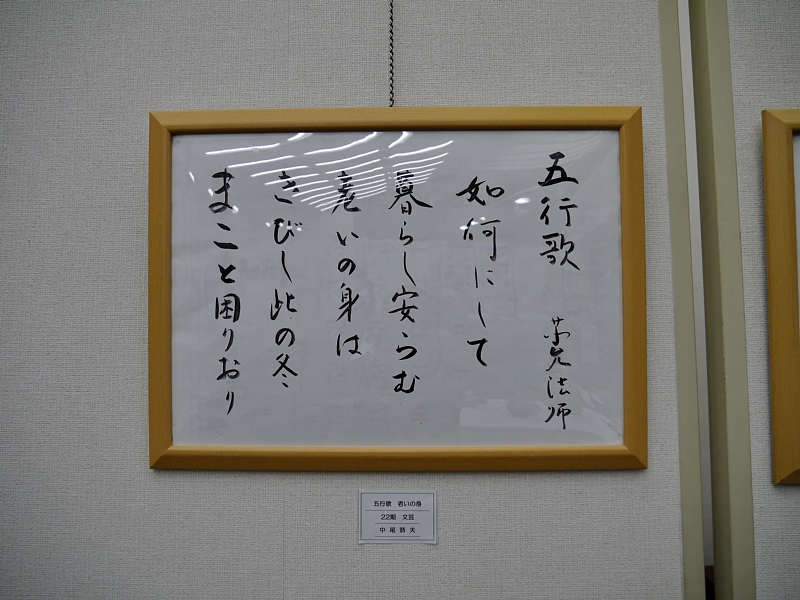 五行歌 法師
如何にして
暮らし安らむ
老いの身は
きびし此の冬
まこと困りおり
五行歌 老いの身
22期 文芸
中尾 夫